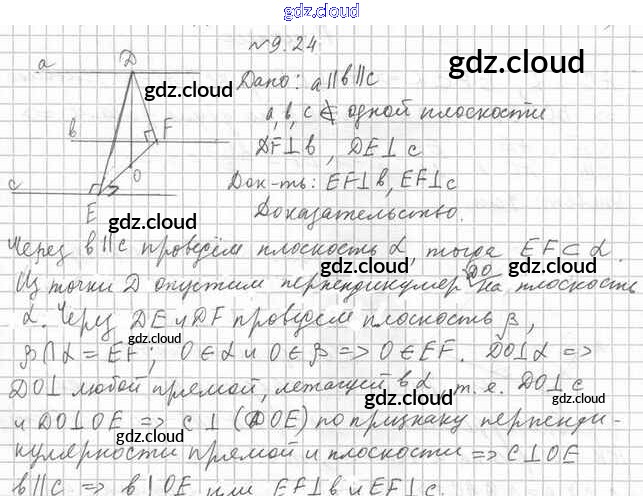 gdz.cloud
№9.24
a D Дано: a∥b∥c
a, b, c ⊄ одной плоскости
b F DF⊥b, DE⊥c
c O E Док-ть: EF⊥b, EF⊥c
Доказательство.
Через b∥c проведём плоскость α, тогда EF⊂α.
Из точки D опустим перпендикуляр DO на плоскость
α. Через DE и DF проведем плоскость β,
β∩α=EF; O∈α и O∈β => O∈EF. DO⊥α =>
DO⊥ любой прямой, лежащей в α, т.е. DO⊥c
и DO⊥OE => c⊥(DOE) по признаку перпенди-
кулярности прямой и плоскости => c⊥OE
b∥c => b⊥OE или EF⊥b и EF⊥c.
gdz.cloud
gdz.cloud
gdz.cloud
gdz.cloud
gdz.cloud
gdz.cloud
gdz.cloud
gdz.cloud
gdz.cloud
gdz.cloud
gdz.cloud
gdz.cloud
gdz.cloud